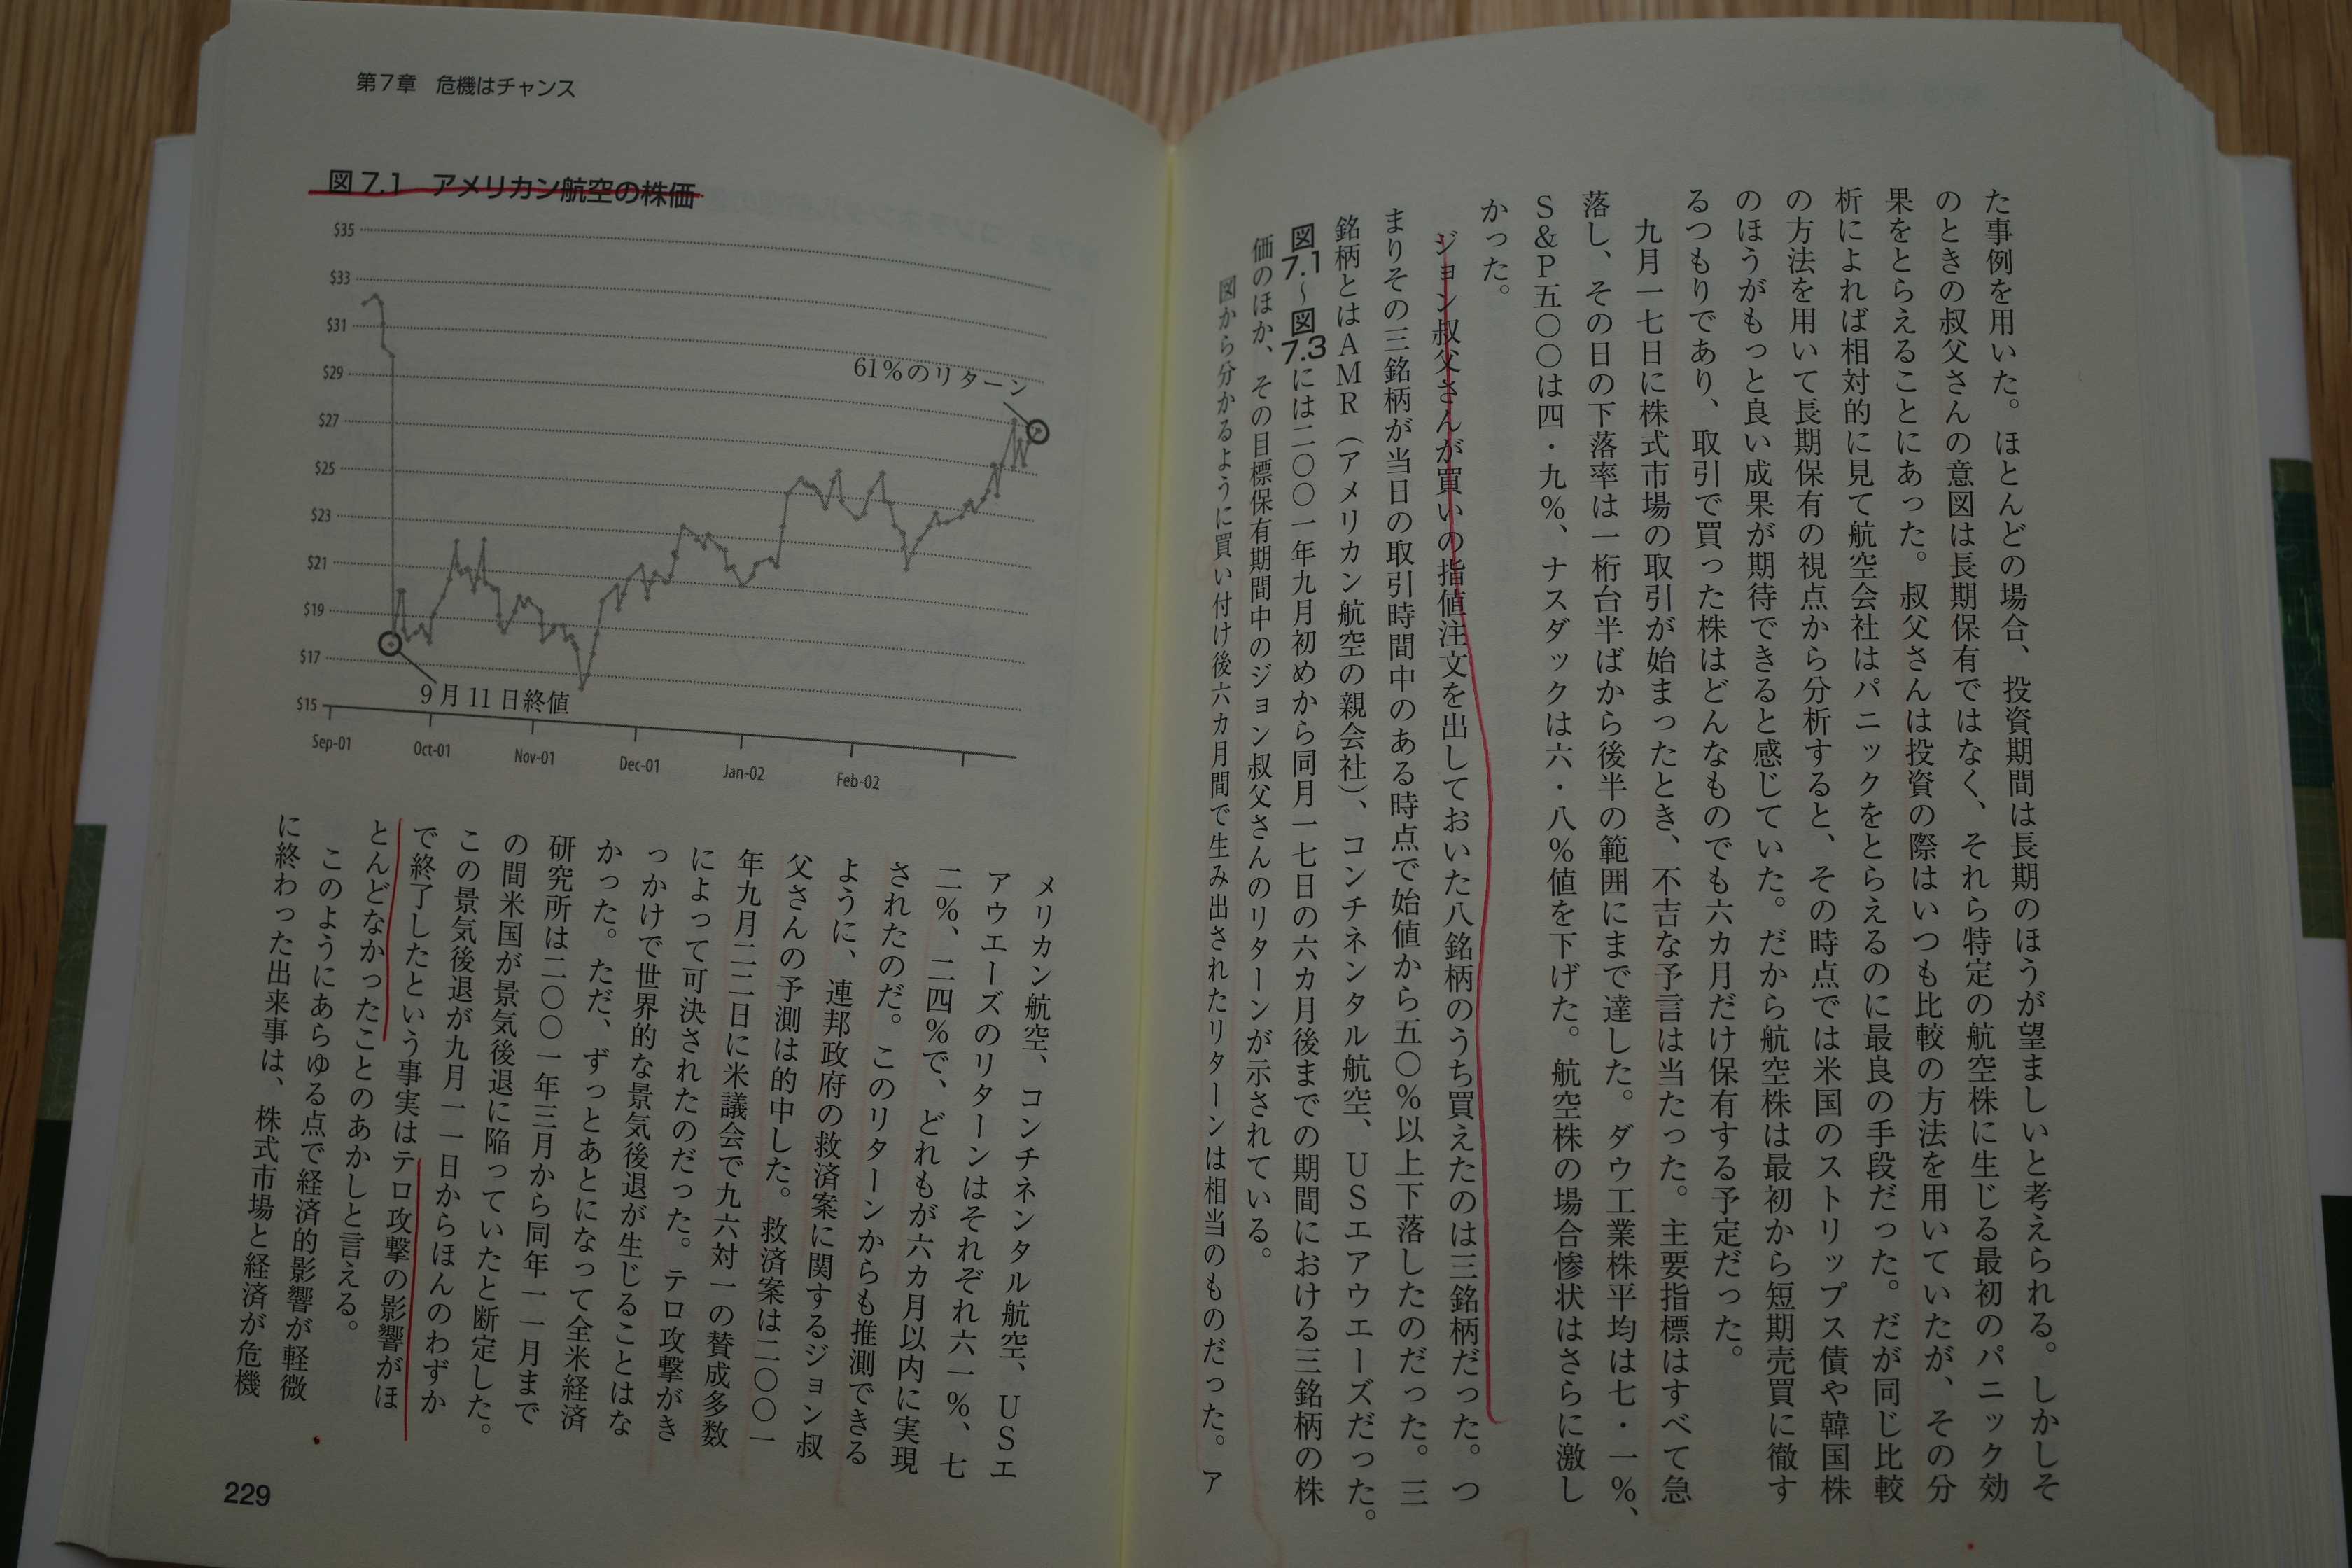 た事例を用いた。ほとんどの場合、投資期間は長期のほうが望ましいと考えられる。しかしそ
のときの叔父さんの意図は長期保有ではなく、それら特定の航空株に生じる最初のパニック効
果をとらえることにあった。叔父さんは投資の際はいつも比較の方法を用いていたが、その分
析によれば相対的に見て航空会社はパニックをとらえるのに最良の手段だった。だが同じ比較
の方法を用いて長期保有の視点から分析すると、その時点では米国のストリップス債や韓国株
のほうがもっと良い成果が期待できると感じていた。だから航空株は最初から短期売買に徹す
るつもりであり、取引で買った株はどんなものでも六カ月だけ保有する予定だった。
九月一七日に株式市場の取引が始まったとき、不吉な予言は当たった。主要指標はすべて急
落し、その日の下落率は一桁台半ばから後半の範囲にまで達した。ダウ工業株平均は七・一％、
Ｓ＆Ｐ五〇〇は四・九％、ナスダックは六・八％値を下げた。航空株の場合惨状はさらに激し
かった。
ジョン叔父さんが買いの指値注文を出しておいた八銘柄のうち買えたのは三銘柄だった。つ
まりその三銘柄が当日の取引時間中のある時点で始値から五〇％以上下落したのだった。三
銘柄とはＡＭＲ（アメリカン航空の親会社）、コンチネンタル航空、ＵＳエアウエーズだった。
図7.1～図7.3には二〇〇一年九月初めから同月一七日の六カ月後までの期間における三銘柄の株
価のほか、その目標保有期間中のジョン叔父さんのリターンが示されている。
図から分かるように買い付け後六カ月間で生み出されたリターンは相当のものだった。ア
第7章　危機はチャンス
図7.1　アメリカン航空の株価
$35
$33
$31
$29
$27
$25
$23
$21
$19
$17
$15
61％のリターン
9月11日終値
Sep-01
Oct-01
Nov-01
Dec-01
Jan-02
Feb-02
メリカン航空、コンチネンタル航空、ＵＳエ
アウエーズのリターンはそれぞれ六一％、七
二％、二四％で、どれもが六カ月以内に実現
されたのだ。このリターンからも推測できる
ように、連邦政府の救済案に関するジョン叔
父さんの予測は的中した。救済案は二〇〇一
年九月二二日に米議会で九六対一の賛成多数
によって可決されたのだった。テロ攻撃がき
っかけで世界的な景気後退が生じることはな
かった。ただ、ずっとあとになって全米経済
研究所は二〇〇一年三月から同年一一月まで
の間米国が景気後退に陥っていたと断定した。
この景気後退が九月一一日からほんのわずか
で終了したという事実はテロ攻撃の影響がほ
とんどなかったことのあかしと言える。
このようにあらゆる点で経済的影響が軽微
に終わった出来事は、株式市場と経済が危機
229